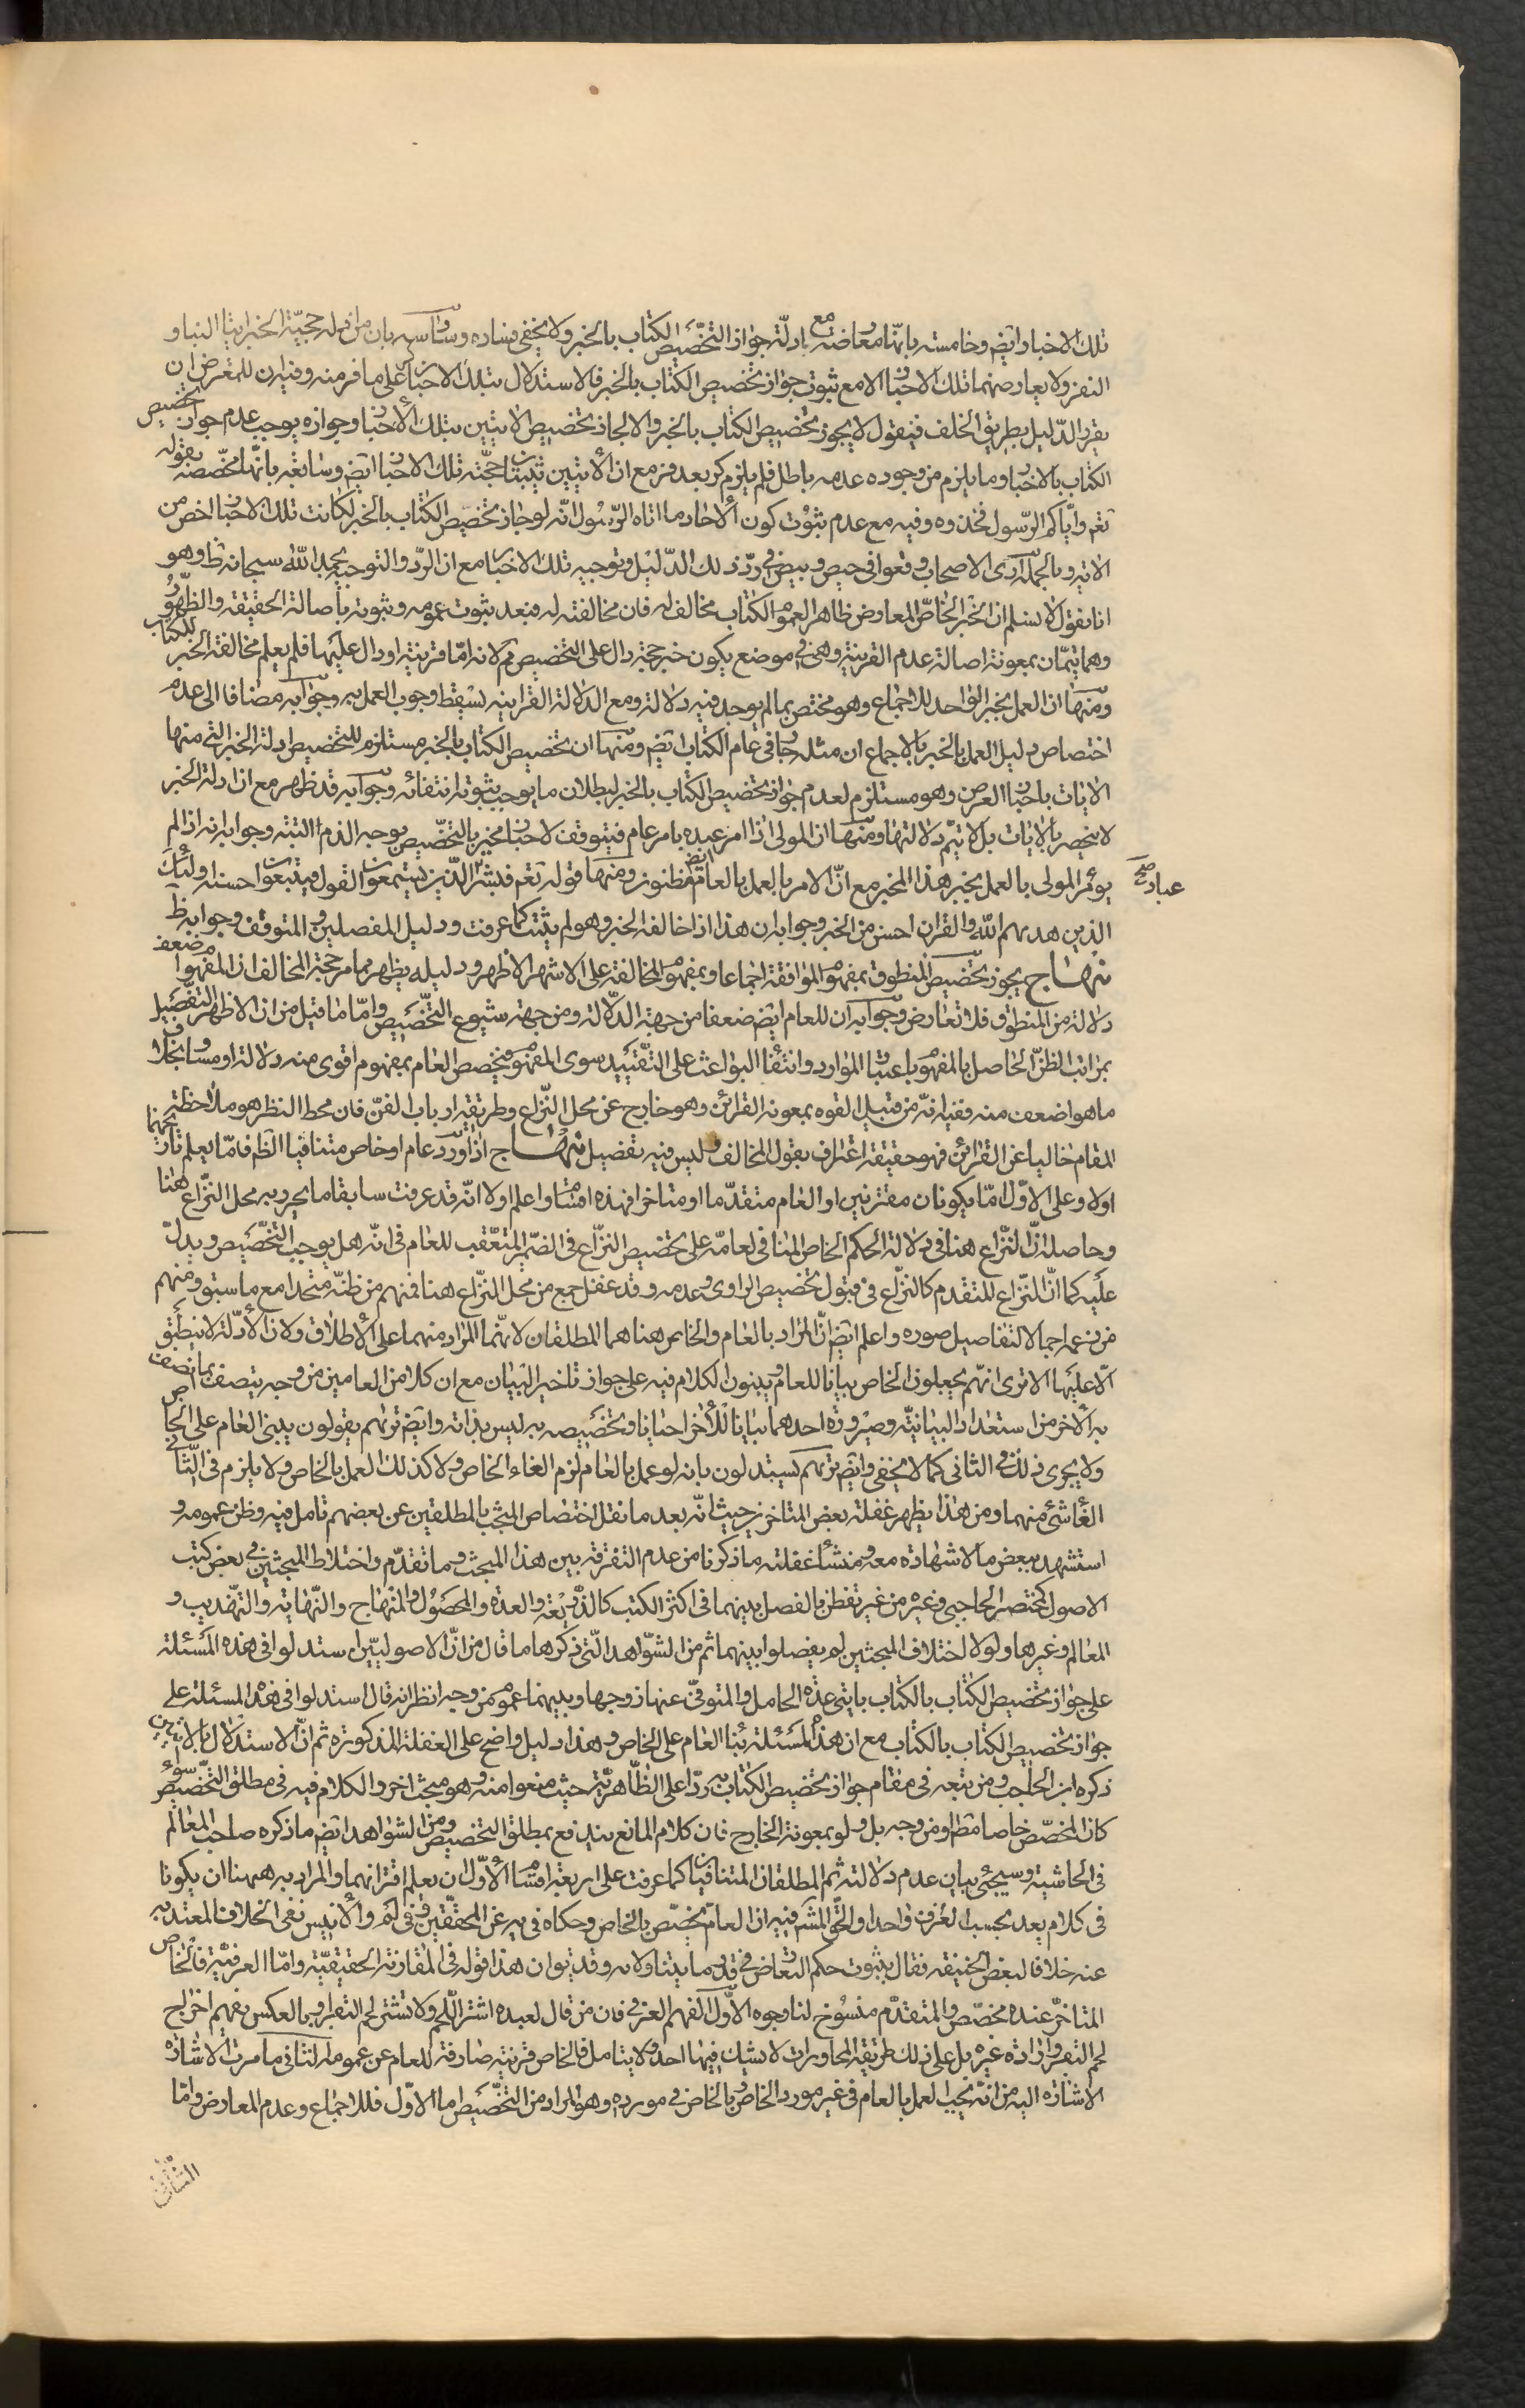 تلك الاخبار ايضا وخامسته بانها معارضة مع ادلة جواز التخصيص الكتاب بالخبر ولا يخفى فساده وسادسه بان من ادلة حجية الخبر ايتا النبا و
النفر ولا يعارضهما تلك الاخبار الا مع ثبوت جواز تخصيص الكتاب بالخبر فالاستدلال بتلك الاخبار على ما فر منه وفيه ان للمعترض ان
يقرر الدليل بطريق الخلف فيقول لا يجوز تخصيص الكتاب بالخبر والا لجاز تخصيص الايتين بتلك الاخبار وجوازه يوجب عدم جواز تخصيص
الكتاب بالاخبار وما يلزم من وجوده عدمه باطل فلم يلزم كر بعد فر مع ان الايتين تثبتان حجية تلك الاخبار ايضا وسابعه بانها مخصصة بقوله
تعم واياكم الرسول فخذوه وفيه مع عدم ثبوت كون الاحاد مما اتاه الرسول انه لو جاز تخصيص الكتاب بالخبر لكانت تلك الاخبار اخص من
الاية وبالجملة ارى الاصحاب وقعوا في حيص وبيص في رد ذلك الدليل وتوجيه تلك الاخبار مع ان الرد والتوجيه بحمد الله سبحانه ظ وهو
انا نقول لا نسلم ان الخبر الخاص المعارض ظاهر العموم الكتاب مخالف له فان مخالفته له فبعد ثبوت عمومه وثبوته باصالة الحقيقة والظهور
وهما يتمان بمعونة اصالة عدم القرينة وهى في موضع يكون خبر حجة دال على التخصيص ثم لانه اما قرينة او دال عليها فلم يعلم مخالفة الخبر للكتاب
ومنها ان العمل بخبر الواحد للاجماع وهو مختص بما لم يوجد فيه دلالة ومع الدلالة القرانية يسقط وجوب العمل به وجوابه مضافا الى عدم
اختصاص دليل العمل بالخبر بالاجماع ان مثله جار فى عام الكتاب ايضا ومنها ان تخصيص الكتاب بالخبر مستلزم للتخصيص ادلة الخبر التى منها
الايات باخبار العرض وهو مستلزم لعدم جواز تخصيص الكتاب بالخبر لبطلان ما يوجب ثبوته انتفائه وجوابه قد ظهر مع ان ادلة الخبر
لا ينحصر بالايات بل لا يتم دلالتها ومنها ان المولى اذا امر عبده بامر عام فيتوقف لاخبار مخبر بالتخصيص يوجب الذم البتة وجوابه انه اذا لم
يؤمر المولى بالعمل بخبر هذا المخبر مع ان الامر بالعمل بالعام ايضا مظنون ومنها قوله تعم فبشر عباد الذين يستمعون القول فيتبعون احسنه اولئك
الذين هديهم الله والقران احسن من الخبر وجوابه ان هذا اذا خالفه الخبر وهو لم يثبت كما عرفت ودليل المفصلين والمتوقف وجوابه ظ
منهاج يجوز تخصيص المنطوق بمفهوم الموافقة اجماعا وبمفهوم المخالفة على الاشهر الاظهر ودليله يظهر مما مر حجة المخالف ان المفهوم اضعف
دلالة من المنطوق فلا تعارض وجوابه ان للعام ايضا ضعفا من جهة الدلالة ومن جهة شيوع التخصيص واما ما قيل من ان الاظهر التفصيل
بمراتب الظن الحاصل بالمفهوم باعتبار الموارد وانتفاء البواعث على التقييد سوى المفهوم فيخصص العام بمفهوم اقوى منه دلالة او مساو بخلاف
ما هو اضعف منه ففيه انه من قبيل القوه بمعونة القرائن وهو خارج عن محل النزاع وطريقة ارباب الفن فان محط النظر هو ملاحظة
المقام خاليا عن القرائن فهو حقيقة اعتراف بقول المخالف وليس فيه تفصيل منهاج اذا ورد عام او خاص متنافيا الظم فاما يعلم تاريخهما
اولا وعلى الاول اما يكونان مقترنين او العام متقدما او متاخرا فهذه اقسام واعلم اولا انه قد عرفت سابقا ما يحرر به محل النزاع هنا
وحاصله ان النزاع هنا فى دلالة الحكم الخاص المنافى لعامه على تخصيص النزاع فى الضمير المتعقب للعام فى انه هل يوجب التخصيص ويدل
عليه كما ان النزاع للمتقدم كالنزاع فى قبول تخصيص الراوى وعدمه وقد غفل جمع من محل النزاع هنا فمنهم من ظنه متحدا مع ما سبق ومنهم
من زعمه اجمالا لتفاصيل صوره واعلم ايضا ان المراد بالعام والخاص هنا هما المطلقان لانهما المراد منهما على الاطلاق ولان الادلة لا ينطبق
الا عليها الا ترى انهم يجعلون الخاص بيانا للعام ويبنون الكلام فيه على جواز تاخير البيان مع ان كلا من العامين من وجه يتصف بما اتصف
به الاخر من استعداد البيانية وصيرورة احدهما بيانا للاخر احيانا وتخصيصه به ليس بذاته وايضا تريهم يقولون يبنى العام على الخاص
ولا يجرى ذلك فى الثانى كما لا يخفى وايضا تريهم يستدلون بانه لو عمل بالعام لزم الغاء الخاص ولا كذلك العمل بالخاص ولا يلزم فى الثانى
الغاء شئ منهما ومن هذا يظهر غفلة بعض المتاخرين حيث انه بعد ما نقل اختصاص المبحث بالمطلقين عن بعضهم تامل فيه وظن عمومه و
استشهد ببعض ما لا شهادة معه ومنشا غفلته ما ذكرنا من عدم التفرقة بين هذا المبحث وما تقدم واختلاط المبحثين فى بعض كتب
الاصول كمختصر الحاجبى وغيره من غير تفطن بالفصل بينهما فى اكثر الكتب كالذريعة والعدة والمحصول والمنهاج والنهاية والتهذيب و
المعالم وغيرها ولولا اختلاف المبحثين لم يفصلوا بينهما ثم من الشواهد التى ذكرها ما قال من ان الاصوليين استدلوا فى هذه المسئلة
على جواز تخصيص الكتاب بالكتاب بايتى عدة الحامل والمتوفى عنها زوجها وبينهما عموم من وجه انظر انه قال استدلوا فى هذه المسئلة على
جواز تخصيص الكتاب بالكتاب مع ان هذه المسئلة بناء العام على الخاص وهذا دليل واضح على الغفلة المذكورة ثم ان الاستدلال بالايتين
ذكره ابن الحاجب ومن تبعه فى مقام جواز تخصيص الكتاب به ردا على الظاهرية حيث منعوا منه وهو مبحث اخر والكلام فيه فى مطلق التخصيص سواء
كان المخصص خاصا مطم او من وجه بل ولو بمعونة الخارج فان كلام المانع يندفع بمطلق التخصيص ومن الشواهد ايضا ما ذكره صاحب المعالم
فى الحاشية وسيجئ بيان عدم دلالته ثم المطلقان المتنافيان كما عرفت على اربعة اقسام الاول ان يعلم اقترانهما والمراد به ههنا ان يكونا
فى كلام يعد بحسب العرف واحدا والحق المشم فيه ان العام يخصص بالخاص وحكاه فى يه عن المحققين وفى لم والانيس نفى الخلاف المعتد به
عنه خلافا لبعض الحنيفة فقال بثبوت حكم التعارض فى قدر ما يتناولانه وقد يقوان هذا قوله فى المقارنة الحقيقية واما العرفية فالخاص
المتاخر عنده مخصص والمتقدم منسوخ لنا وجوه الاول الفهم العرفى فان من قال لعبده اشتر اللحم ولا تشتر لحم البقر او بالعكس يفهم اخراج
لحم البقر وارادة غيره بل على ذلك طريقة المحاورات لا يشك فيها احد ولا يتامل فالخاص قرينة صارفة للعام عن عمومه الثانى ما مرت الاشارة
الاشارة اليه من انه يجب العمل بالعام فى غير مورد الخاص وبالخاص فى مورده وهو المراد من التخصيص اما الاول فللاجماع وعدم المعارض واما
عباد صح
الثانى